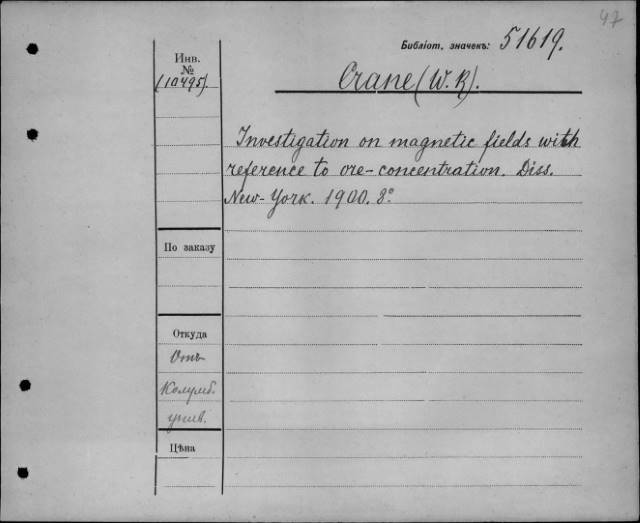 47
Библіот. значекъ: 51619.
Инв.
№
(10495).
Crane (W. R).
Investigation on magnetic fields with
reference to ore-concentration. Diss.
New-York. 1900. 8°
По заказу
Откуда
Отъ
Колумб.
унив.
Цѣна